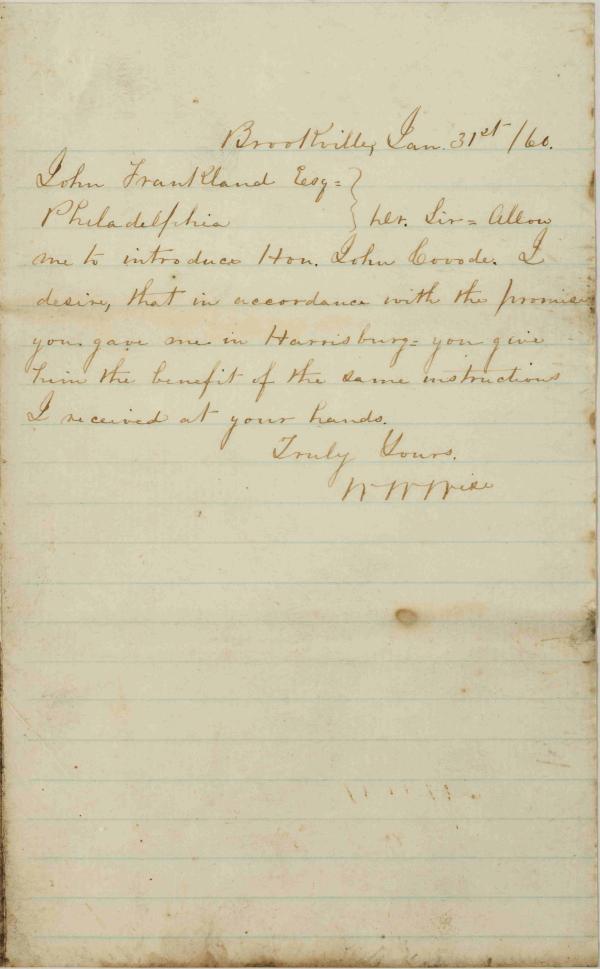 Brookville, Jan. 31st /60.
John Frankland Esq=
Philadelphia } Dr. Sir= Allow
me to introduce Hon. John Covode. I
desire, that in accordance with the promise
you gave me in Harrisburg= you give
him the benefit of the same instructions
I received at your hands.
Truly Yours.
W W Wise